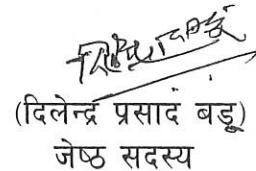 (दिलेन्द्र प्रसाद बडू)
जेष्ठ सदस्य